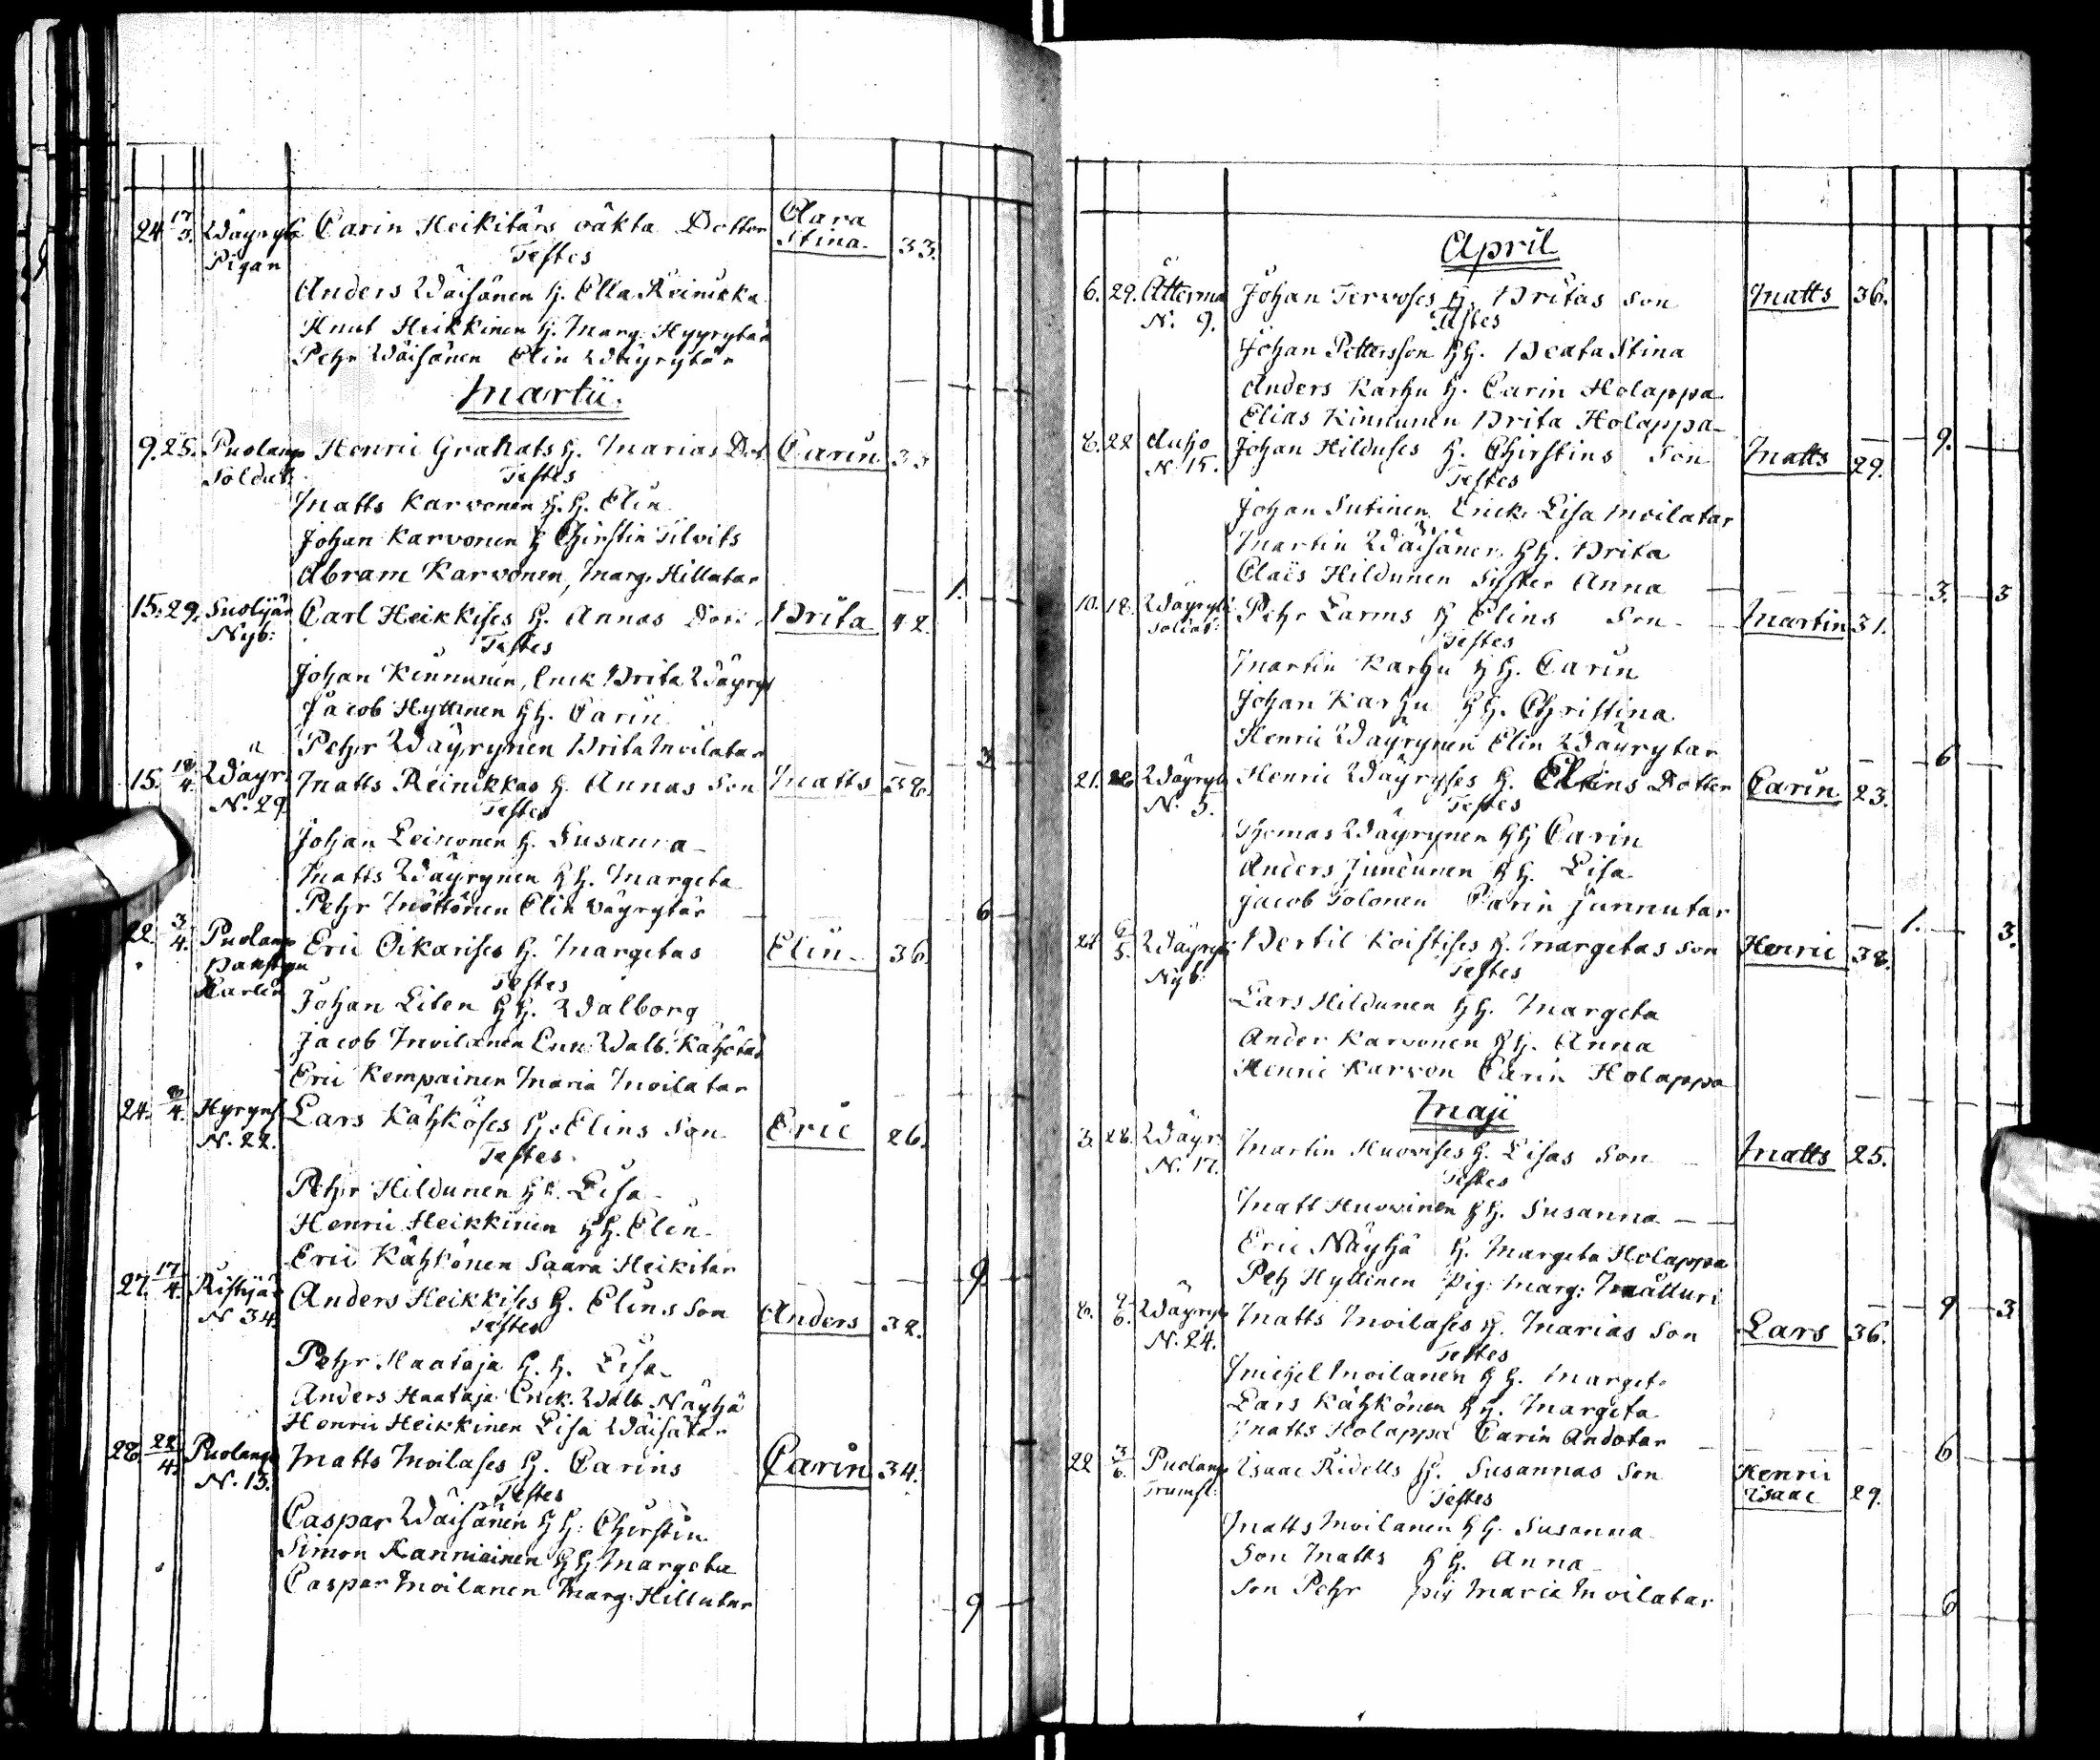 24 17/3. Wäyryl Carin Heikitärs oäkta Dotter Clara Stina. 33.
Pigan Testes
Anders Wäisänen h. Ella Reinikka
Knut Heikkinen h. Marg. Hyyrytär
Pehr Wäisänen Elin Wäyrytär
Martii.
9. 25. Puolang Henric Grahats h. Marias Dot Carin 33
Soldat. Testes
Matts Karvonen h. h. Elin
Johan Karvonen h Chirstin Tilvits
Abram Karvonen, Marg. Hillutar
1.
15. 29. Suolijär Carl Heikkises h. Annas Dott. Brita 42.
Nyb: Testes
Johan Kinnunen, Enck Brita Wäyryt
Jacob Hyttinen h h. Carin
Pehr Wäyrynen Brita Moilatar
3
15. 18/4. Wäyr. Matts Reinikkas h. Annas Son Matts 38.
N. 29. Testes
Johan Leinonen h. Susanna
Matts Wäyrynen h h. Margeta
Pehr Möttönen Elin Wäyrytär
6
22. 3/4. Puolang Eric Oikarises h. Margetas Elin 36.
Karlin Testes
Johan Liten h h. Walborg
Jacob Moilanen Enk: Walb. Kähötar
Eric Kempainen Maria Moilatar
24. 8/4. Hyryns Lars Kähköses h. Elins Son Eric 26.
N. 22. Testes
Pehr Hildunen h h. Lisa
Henric Heikkinen h h. Elin
Eric Kähkönen Saara Heikitar
9
27. 17/4. Ristijär Anders Heikkises h. Elins Son Anders 32.
N 34. Testes
Pehr Haataja h. h. Lisa
Anders Haataja Enck. Walb Näyhä
Henric Heikkinen Lisa Wäisätär
28 28/4. Puolang Matts Moilases h. Carins Carin 34.
N. 13. Testes
Caspar Wäisänen h h: Chirstin
Simon Kanniainen h h Margeta
Caspar Moilanen Marg. Hillutar
9
April
6. 29. Atterma Johan Tervoses h. Britas Son Matts 36.
N. 9. Testes
Johan Pettersson h h. Beata Stina
Anders Karhu h. Carin Holappa
Elias Kinnunen Brita Holappa
9.
8. 22 Auho Johan Hilduses h. Chirstins Son Matts 29.
N. 15. Testes
Johan Sutinen Enck. Lisa Moilatar
Martin Wäisänen h h. Brita
Claës Hildunen Syster Anna
3. 3
10. 18. Wäyryl Pehr Larms h Elins Son Martin 31.
Soldat: Testes
Martin Karhu h h. Carin
Johan Karhu h h. Christina
Henric Wäyrynen Elin Wäyrytär
6
21. 26 Wäyryl Henric Wäyryses h. Elins Dotter Carin 23.
N. 5. Testes
Thomas Wäyrynen h h Carin
Anders Juncunen h h. Lisa
Jacob Tolonen Carin Junnutar
1. 3.
24 6/5. Wäyryl Bertil Koistises h. Margetas Son Henric 38.
Nyb: Testes
Lars Hildunen h h. Margeta
Ander Karvonen h h. Anna
Henric Karvon Carin Holappa
Maji
3. 28. Wäyr. Martin Huovises h. Lisas Son Matts 25.
N. 17. Testes
Matt Huovinen h h. Susanna
Eric Näyhä h. Margeta Holappa
Peh Hyttinen Pig: Marg: Mätturi
9 3
8. 9/6. Wäyryl Matts Moilases h. Marias Son Lars 36.
N. 24. Testes
Michel Moilanen h h. Marget
Lars Kähkönen h h. Margeta
Matts Holappa Carin Andotar
6
22 3/6. Puolang Isaac Ridells h. Susannas Son Henric Isaac 29.
Trumsl: Testes
Matts Moilanen h h. Susanna
Son Matts h h. Anna
Son Pehr pig Maria Moilatar
6